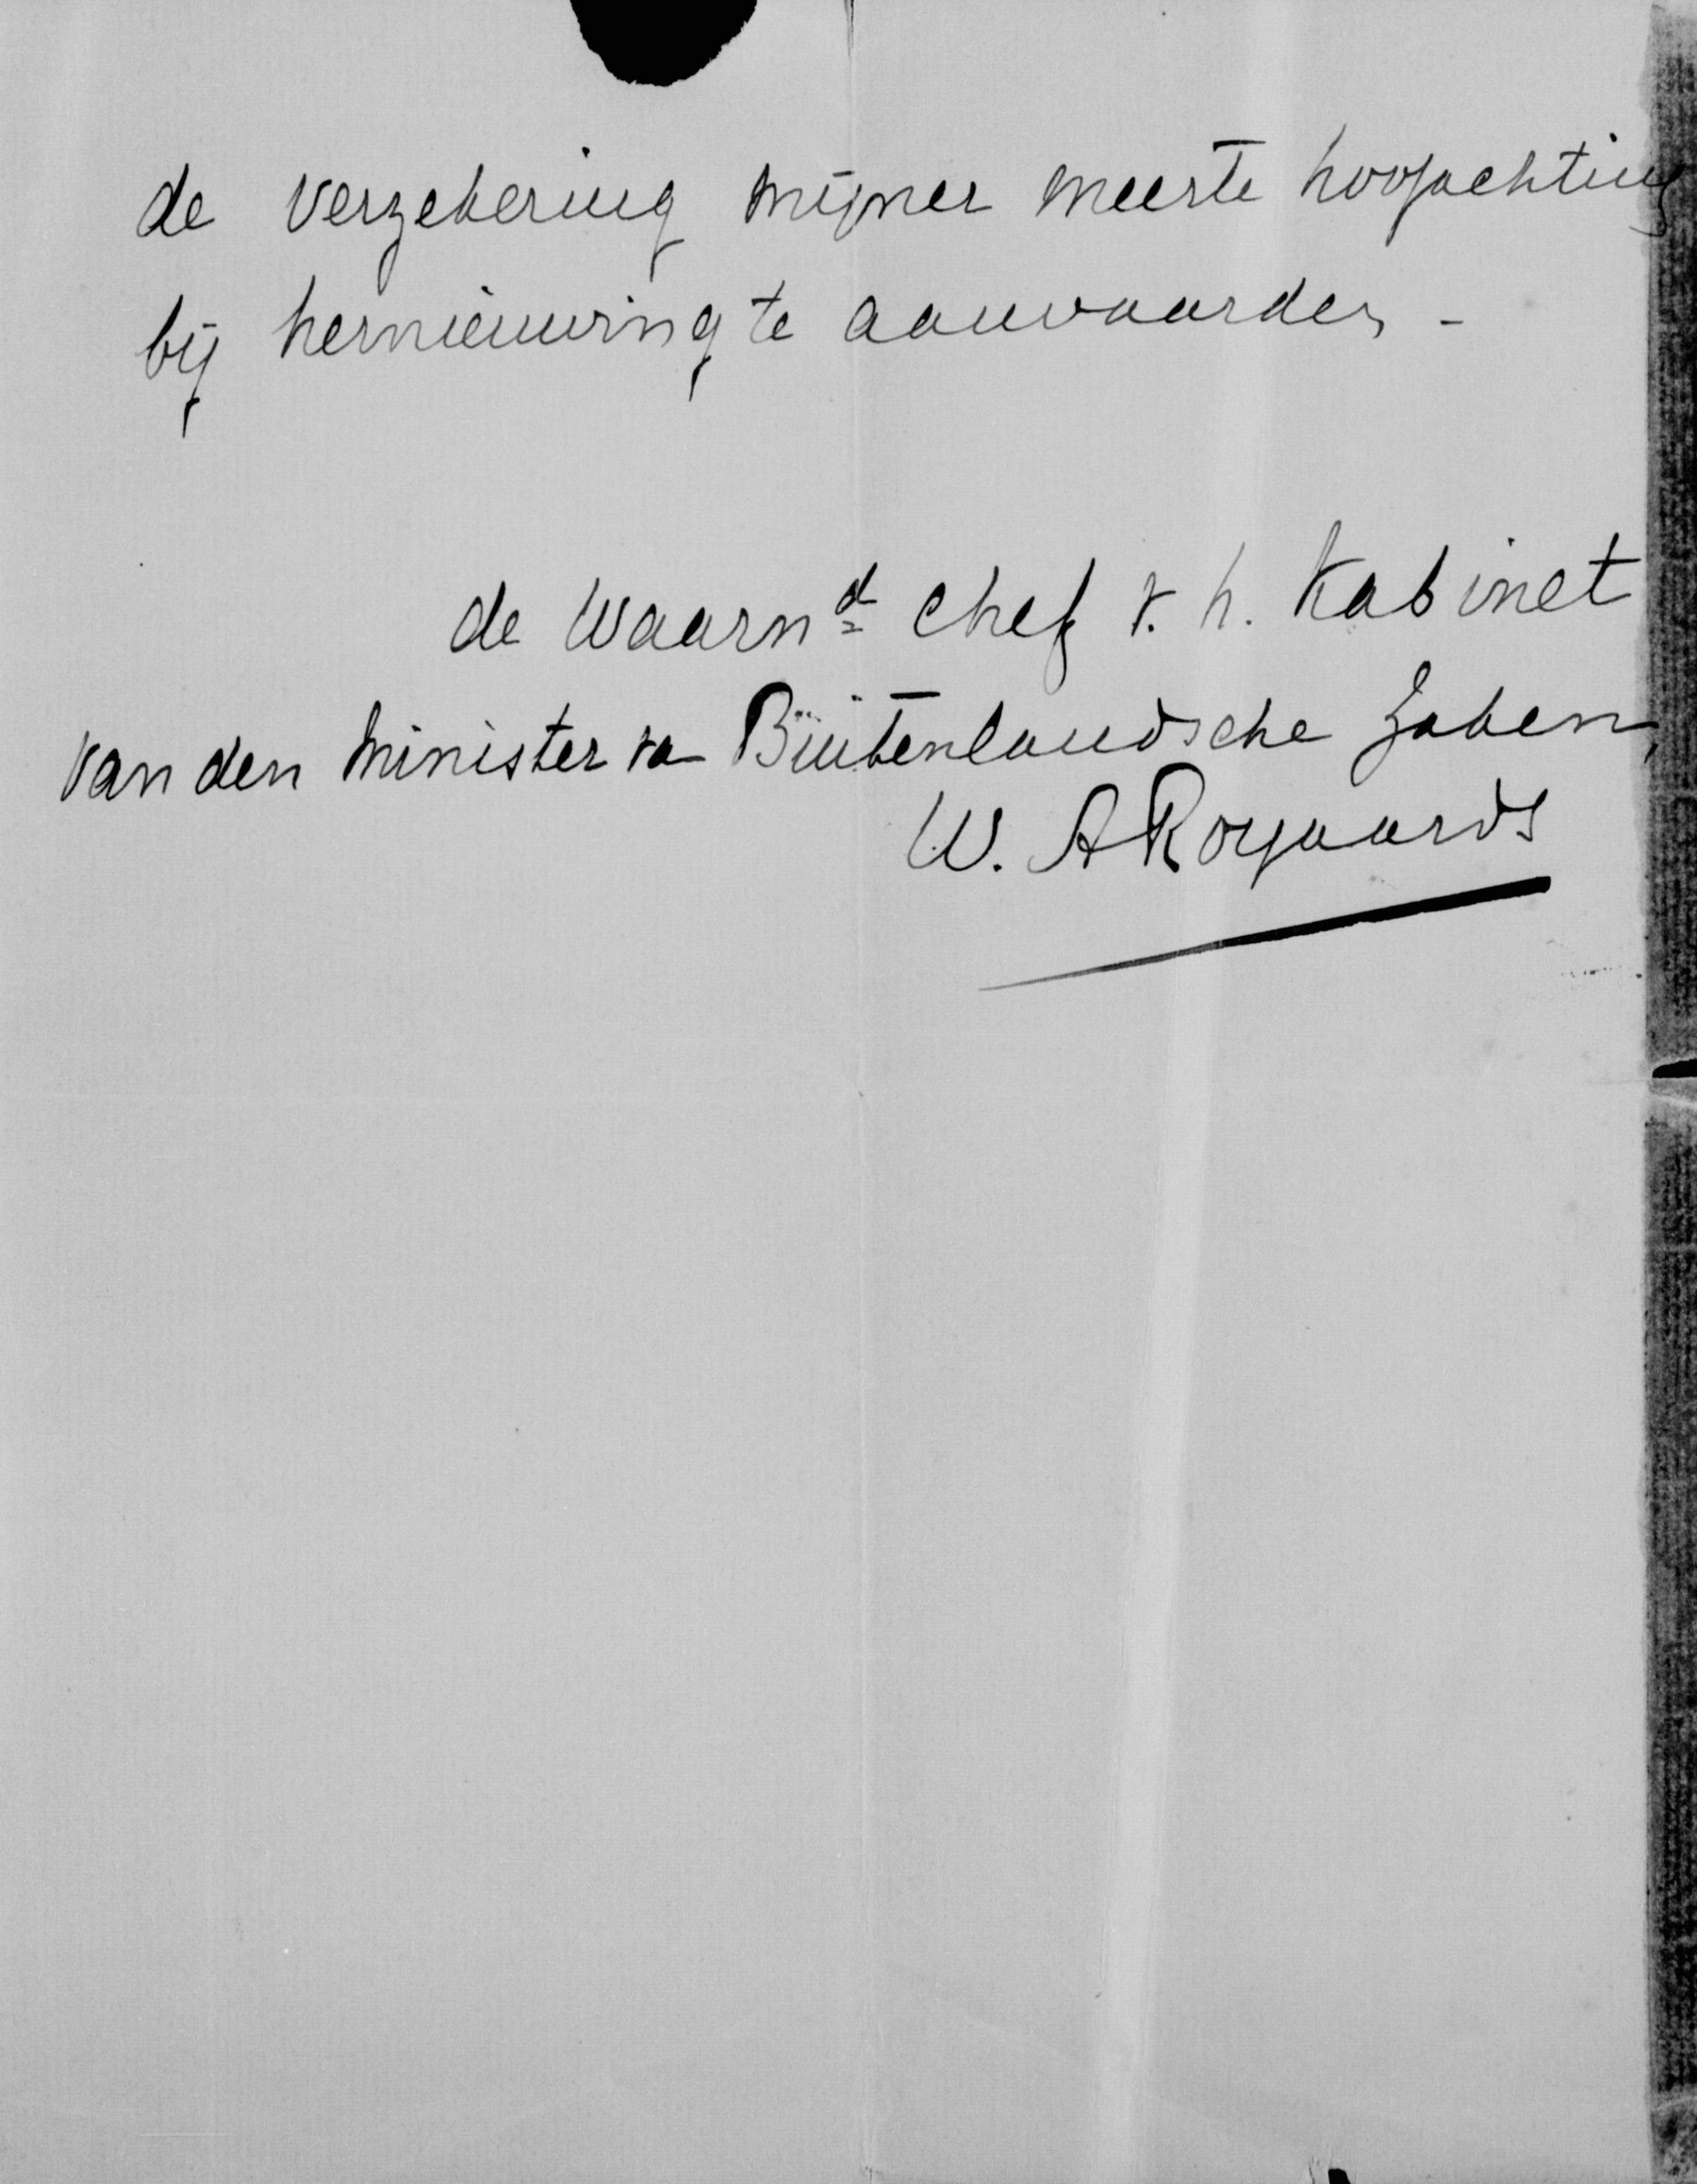 de verzekering mijner meeste hoogachting
bij hernieuwing te aanvaarden -
de Waarnd chef v. h. Kabinet
van den Minister va Buitenlandsche Zaken,
W. A Royaards